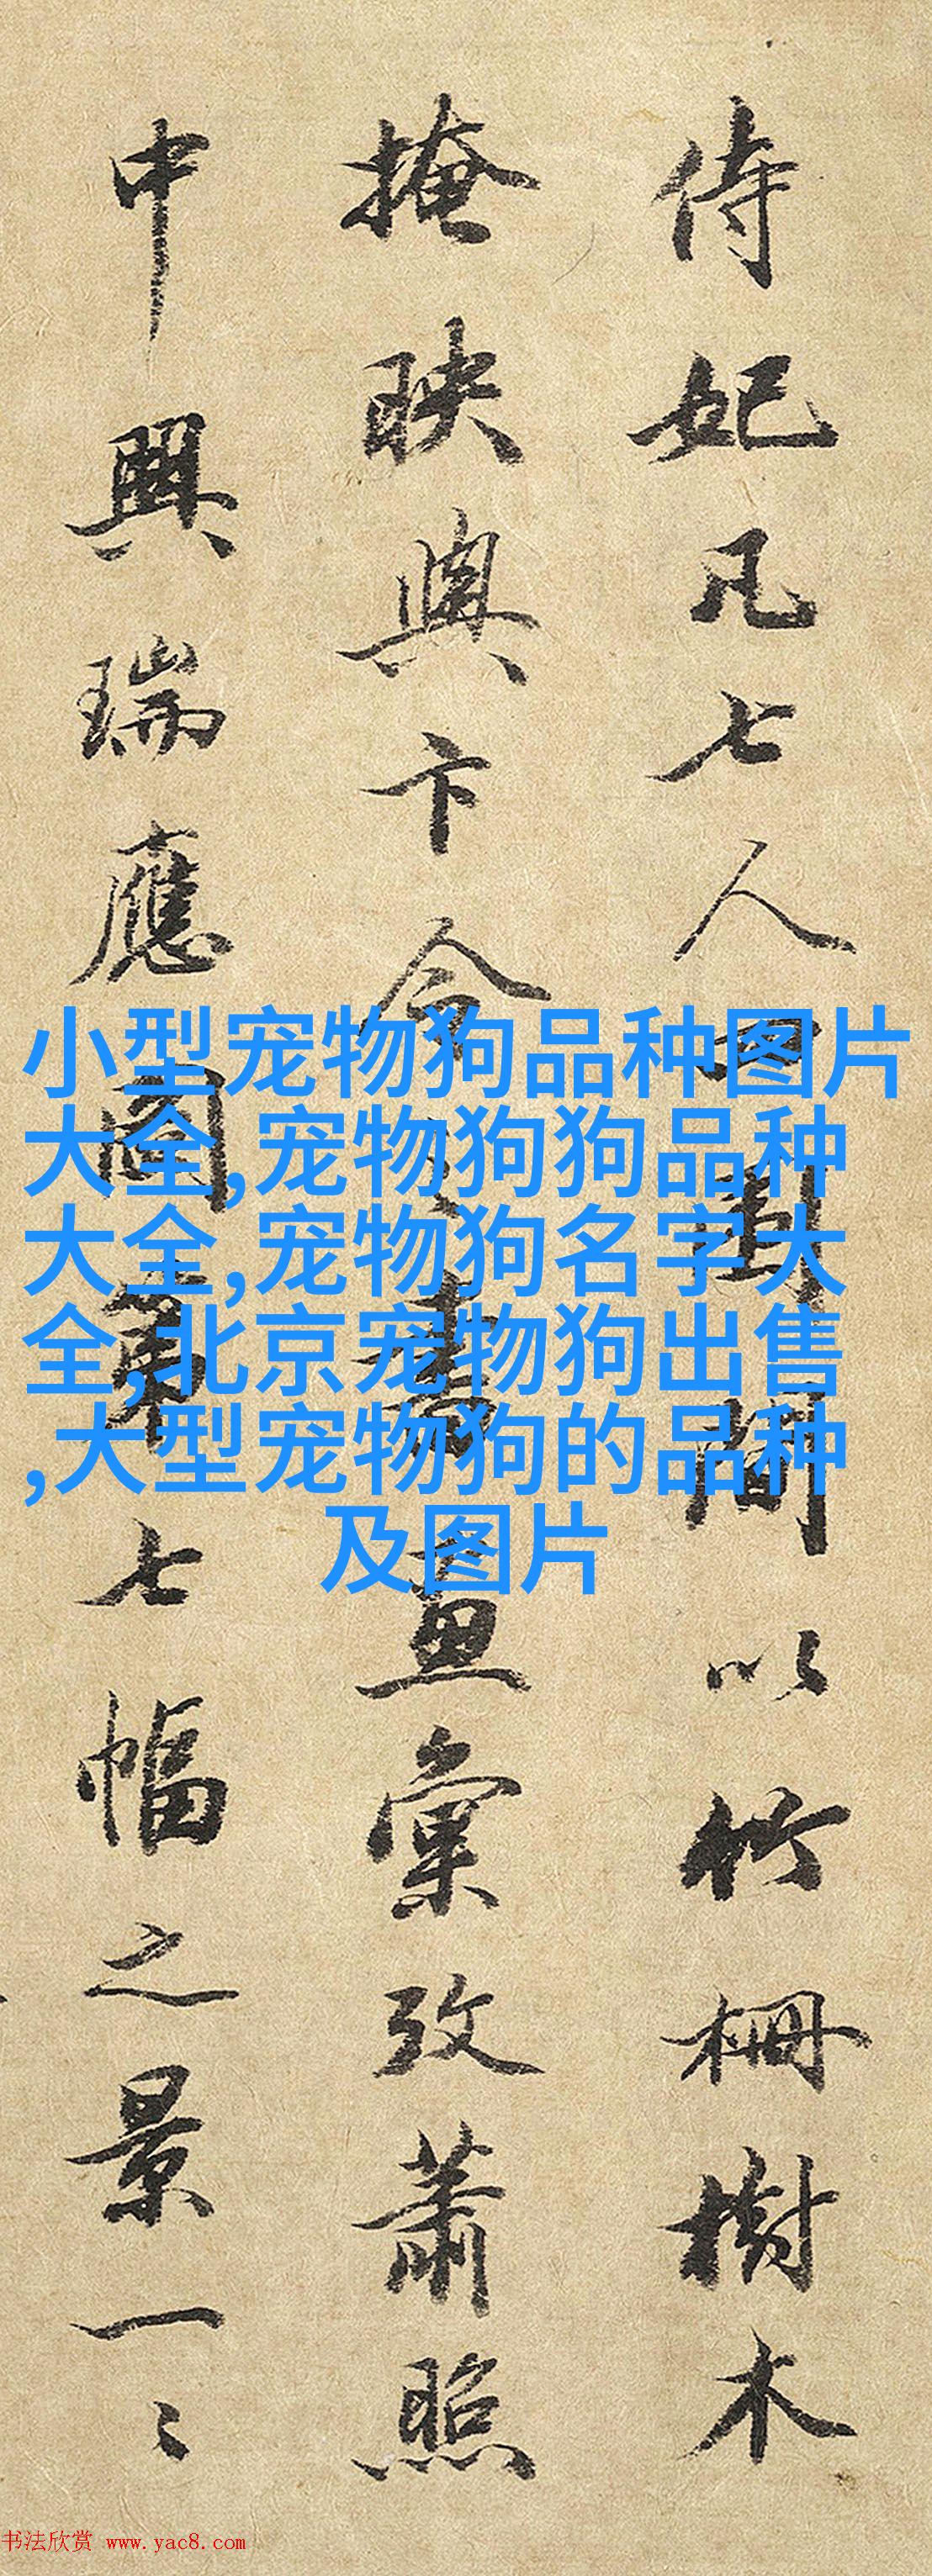 侍妃凡七人間以竹柵樹木
掩映與卞令之書畫彙攷蕭照
中興瑞應圖第七幅之景一〻
小型宠物狗品种图片
大全,宠物狗狗品种
大全,宠物狗名字大
全,北京宠物狗出售
,大型宠物狗的品种
及图片
书法欣赏 www.yac8.com